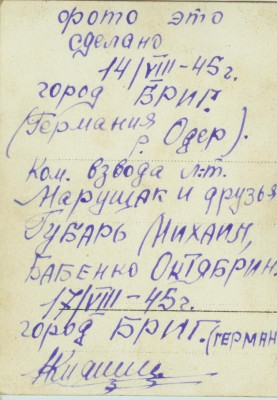 фото это
сделано
14/VIII-45г.
город БРИГ.
(Германия
р. Одер).
Ком. взвода л-т.
Марущак и друзья
Губарь Михаил,
Бабенко Октябрин.
17/VIII-45г.
город БРИГ. (ГЕРМАН